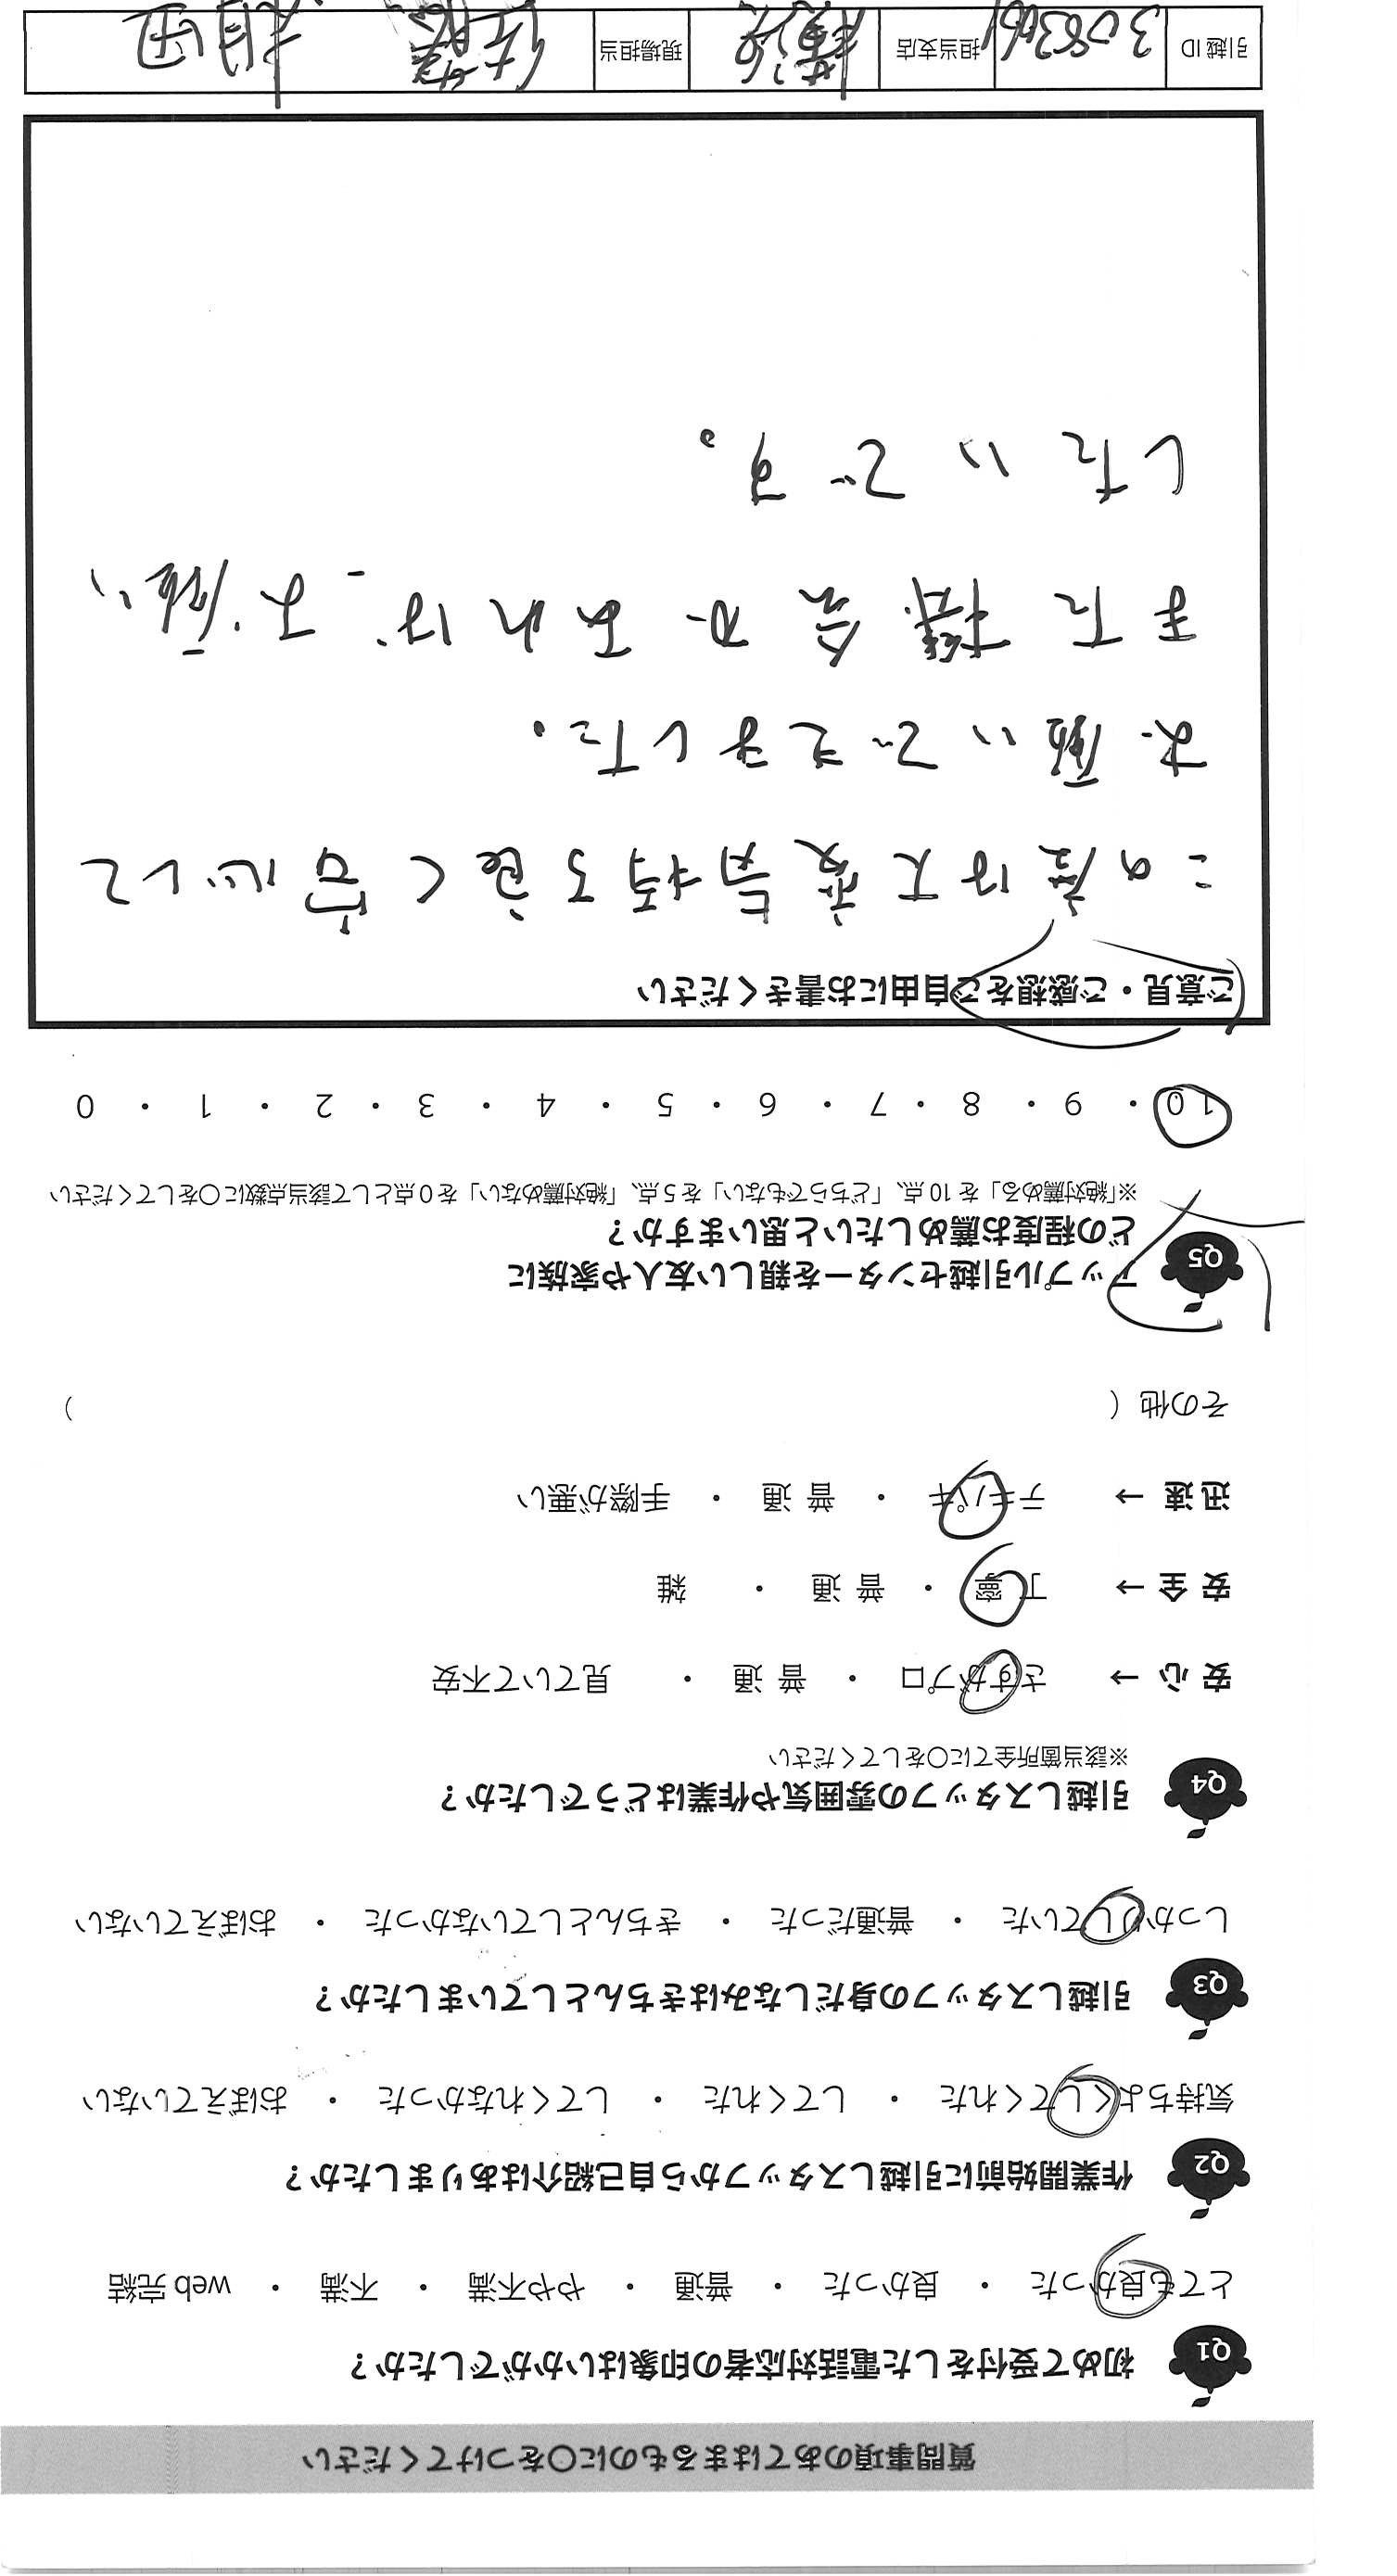 質問事項のあてはまるものに○をつけてください
Q1 初めて受付をした電話対応者の印象はいかがでしたか？
とても良かった ・ 良かった ・ 普通 ・ やや不満 ・ 不満 ・ web 完結
Q2 作業開始前に引越しスタッフから自己紹介はありましたか？
気持ちよくしてくれた ・ してくれた ・ してくれなかった ・ おぼえていない
Q3 引越しスタッフの身だしなみはきちんとしていましたか？
しっかりしていた ・ 普通だった ・ きちんとしていなかった ・ おぼえていない
Q4 引越しスタッフの雰囲気や作業はどうでしたか？
※該当箇所全てに○をしてください
安 心 → さすがプロ ・ 普 通 ・ 見ていて不安
安 全 → 丁 寧 ・ 普 通 ・ 雑
迅 速 → テキパキ ・ 普 通 ・ 手際が悪い
その他（ ）
Q5 アップル引越センターを親しい友人や家族に
どの程度お薦めしたいと思いますか？
※「絶対薦める」を 10 点、「どちらでもない」を 5 点、「絶対薦めない」を 0 点として該当点数に○をしてください
10 ・ 9 ・ 8 ・ 7 ・ 6 ・ 5 ・ 4 ・ 3 ・ 2 ・ 1 ・ 0
ご意見・ご感想をご自由にお書きください
この度は大変気持ち良く安心して
お願いできました。
また機会があれば、お願い
したいです。
引越 ID 担当支店 横浜 現場担当 佐藤